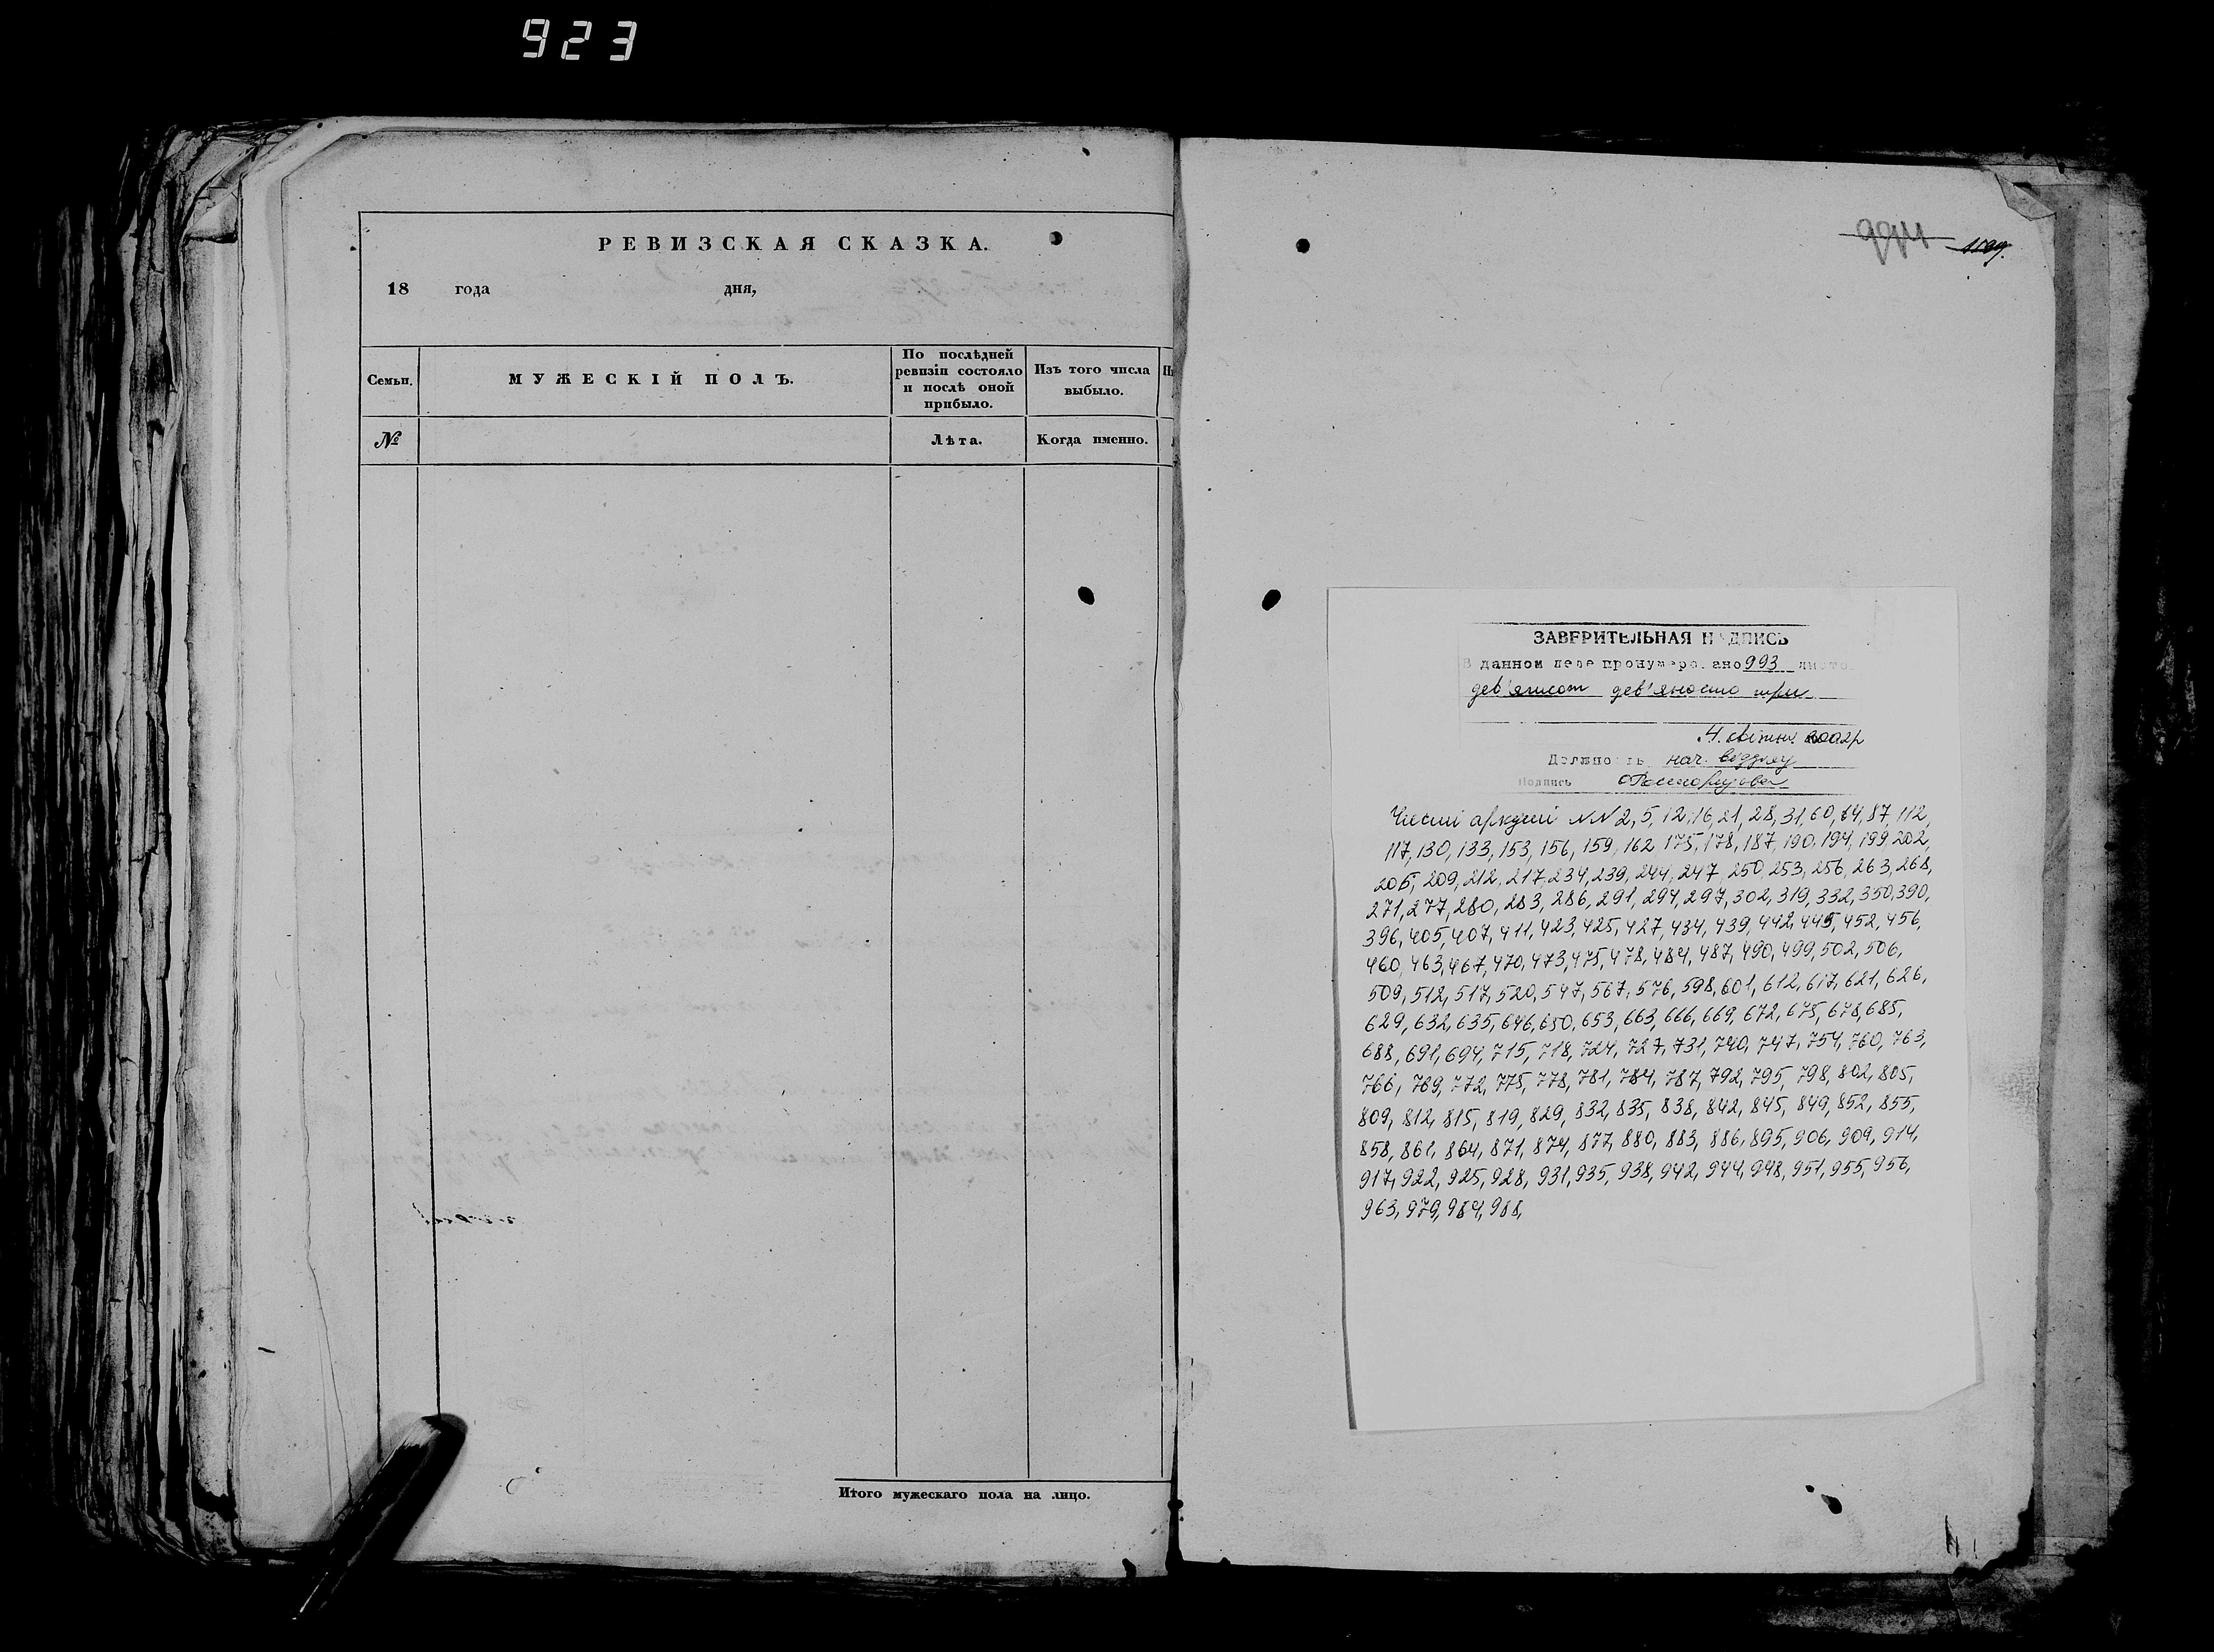 923
РЕВИЗСКАЯ СКАЗКА.
18 года дня,
Семьи.
МУЖЕСКІЙ ПОЛЪ.
По послѣдней ревизіи состояло и послѣ оной прибыло.
Изъ того числа выбыло.
№
Лѣта.
Когда именно.
Итого мужескаго пола на лицо.
994
ЗАВЕРИТЕЛЬНАЯ НАДПИСЬ
В данном деле пронумеровано 993 листо
дев'ятсот дев'яносто три
4 квітня 2002р
Должность нач. відділу
Подпись
Чисті аркуші NN 2, 5, 12, 16, 21, 28, 31, 60, 64, 87, 112,
117, 130, 133, 153, 156, 159, 162, 175, 178, 187, 190, 194, 199, 202,
205, 209, 212, 217, 234, 239, 244, 247, 250, 253, 256, 263, 268,
271, 277, 280, 283, 286, 291, 294, 297, 302, 319, 332, 350, 390,
396, 405, 407, 411, 423, 425, 427, 434, 439, 442, 445, 452, 456,
460, 463, 467, 470, 473, 475, 478, 484, 487, 490, 499, 502, 506,
509, 512, 517, 520, 547, 567, 576, 598, 601, 612, 617, 621, 626,
629, 632, 635, 646, 650, 653, 663, 666, 669, 672, 675, 678, 685,
688, 691, 694, 715, 718, 724, 727, 731, 740, 747, 754, 760, 763,
766, 769, 772, 775, 778, 781, 784, 787, 792, 795, 798, 802, 805,
809, 812, 815, 819, 829, 832, 835, 838, 842, 845, 849, 852, 855,
858, 861, 864, 871, 874, 877, 880, 883, 886, 895, 906, 909, 914,
917, 922, 925, 928, 931, 935, 938, 942, 944, 948, 951, 955, 956,
963, 979, 984, 988,